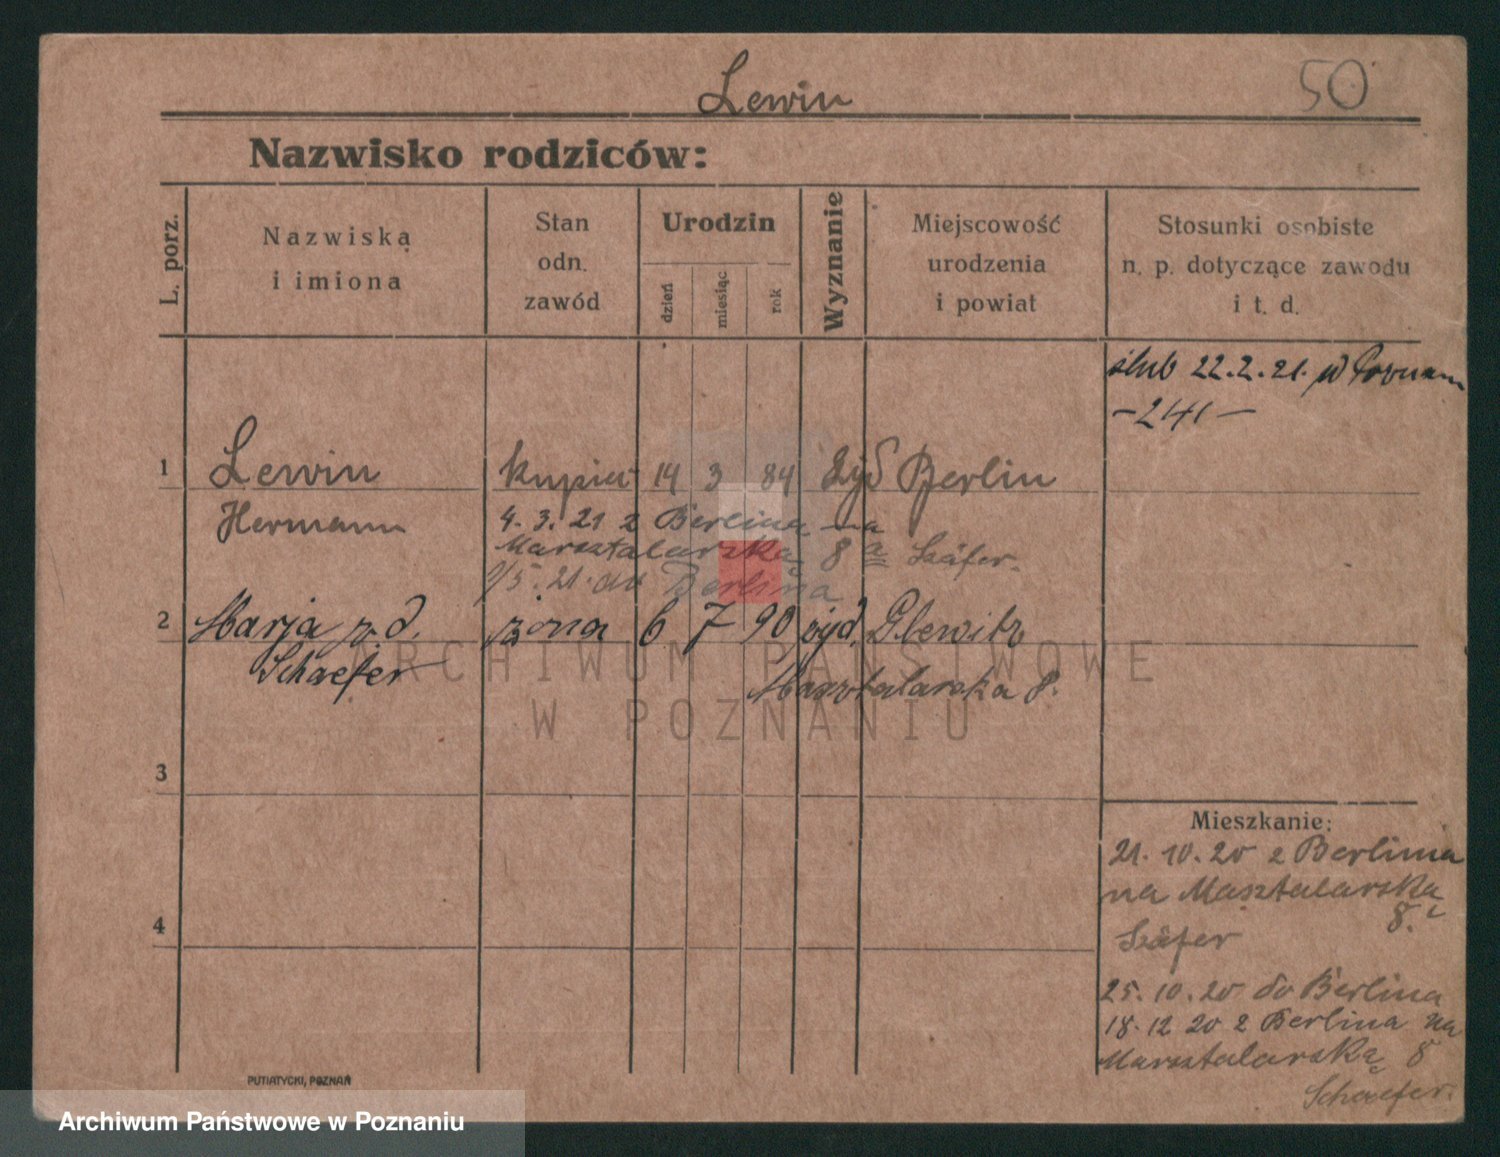 Lewin
50
Nazwisko rodziców:
L. porz.
Nazwiska
i imiona
Stan
odn.
zawód
Urodzin
dzień
miesiąc
rok
Wyznanie
Miejscowość
urodzenia
i powiat
Stosunki osobiste
n. p. dotyczące zawodu
i t. d.
ślub 22.2.21. w Poznaniu
-241-
1 Lewin kupiec 14 3 84 żyd Berlin
Hermann
4. 3. 21 z Berlina na
Marsztalarską 8 a Szäfer.
9/5. 21. do Berlina
2 Marja z d. żona 6 7 90 żyd. Glewitz
Schaefer
Masztalarska 8.
ARCHIWUM PAŃSTWOWE
W POZNANIU
3
4
Mieszkanie:
21. 10. 20 z Berlina
na Masztalarską
8.
Szäfer
25. 10. 20 do Berlina
18. 12 20 z Berlina na
Marsztalarską 8
Schaefer.
PUTIATYCKI, POZNAŃ
Archiwum Państwowe w Poznaniu